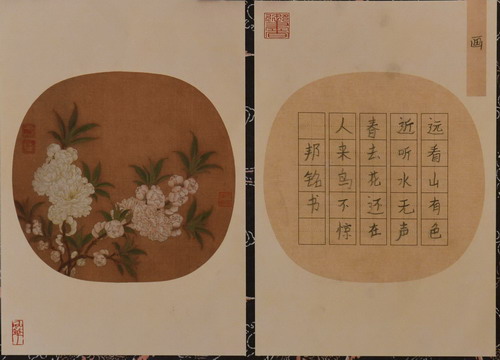 画
远看山有色
近听水无声
春去花还在
人来鸟不惊
邦铭书